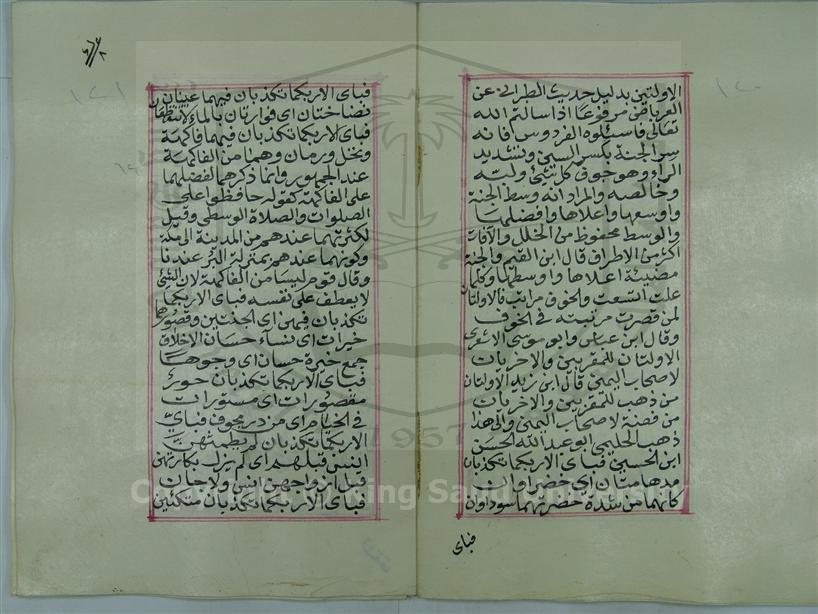 ١٢٠
الاولتين بدليل حديث الطبراني عن
العرباض مرفوعا اذا سالتم الله
تعالى فاسئلوه الفردوس فانه
سر الجنة بكسر السين وتشديد
الراء وهو جوف كل شيئ ولبه
وخالصه والمراد انه وسط الجنة
واوسعها واعلاها وافضلها
والوسط محفوظ من الخلل والآفات
اكثر من الاطراف قال ابن القيم والجنة
اعلاها واوسطها وكلما
علت اتسعت والخوف مراتب فالاولتان
لمن قصرت مرتبته في الخوف
وقال ابن عباس وابو موسى الاشعري
الاولتان للمقربين والاخريات
لاصحاب اليمين قال ابن زيد الاولتان
من ذهب للمقربين والاخريات
من فضة لاصحاب اليمين والى هذا
ذهب الحليمي ابو عبد الله الحسن
ابن الحسين فباى الاء ربكما تكذبان
مدهامتان اي خضراوان
كانهما من شدة خضرتهما سوداوان
فباى
١٢١
فباى الاء ربكما تكذبان فيهما عينان
نضاختان اى فوارتان بالماء لا ينقطعان
فباى الاء ربكما تكذبان فيهما فاكهة
ونخل ورمان وهما من الفاكهة
عند الجمهور وانما ذكرهما لفضلهما
على الفاكهة كقوله حافظوا على
الصلوات والصلاة الوسطى وقيل
لكثرتهما عندهم من المدينة الى مكة
وكونهما عندهم بمنزلة البر عندنا
وقال قوم ليسا من الفاكهة لان الشئ
لا يعطف على نفسه فباى الاء ربكما
تكذبان فيهن اى الجنتين وقصورهما
خيرات اى نساء حسان الاخلاق
جمع خيرة حسان اى وجوها
فباى الاء ربكما تكذبان حور
مقصورات اى مستورات
في الخيام اى من در مجوف فباي
الاء ربكما تكذبان لم يطمثهن
انس قبلهم اى لم يزل بكارتهن
قبل ازواجهن انس ولا جان
فباى الاء ربكما تكذبان متكئين
1957
Copyright © King Saud University